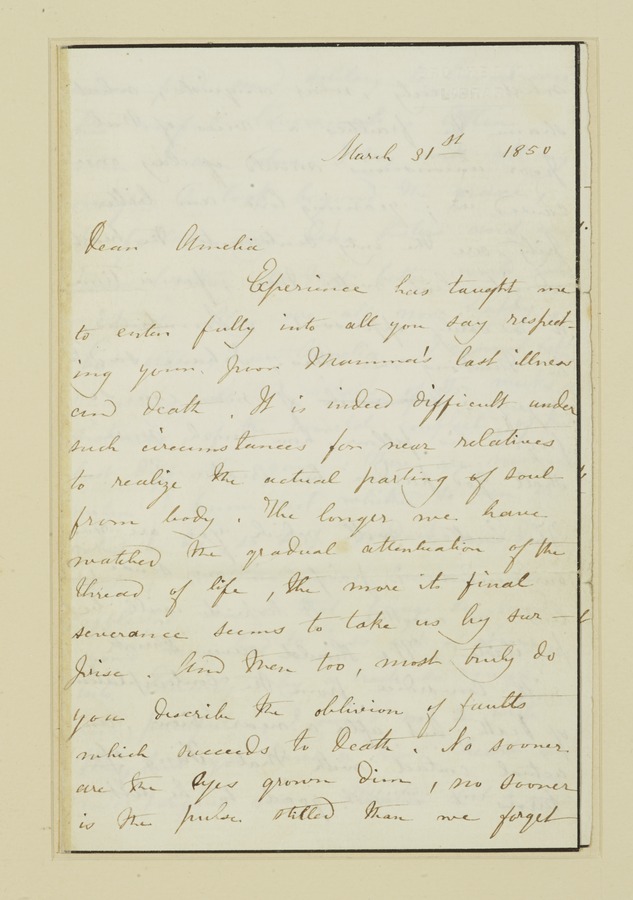 March 31st 1850
Dear Amelia
Experience has taught me
to enter fully into all you say respect-
ing your poor Mamma's last illness
and death. It is indeed difficult under
such circumstances for near relatives
to realize the actual parting of soul
from body. The longer we have
watched the gradual attenuation of the
thread of life, the more its final
severance seems to take us by sur-
prise. And then too, most truly do
you describe the oblivion of faults
which succeeds to Death. No sooner
are the eyes grown dim, no sooner
is the pulse stilled than we forget